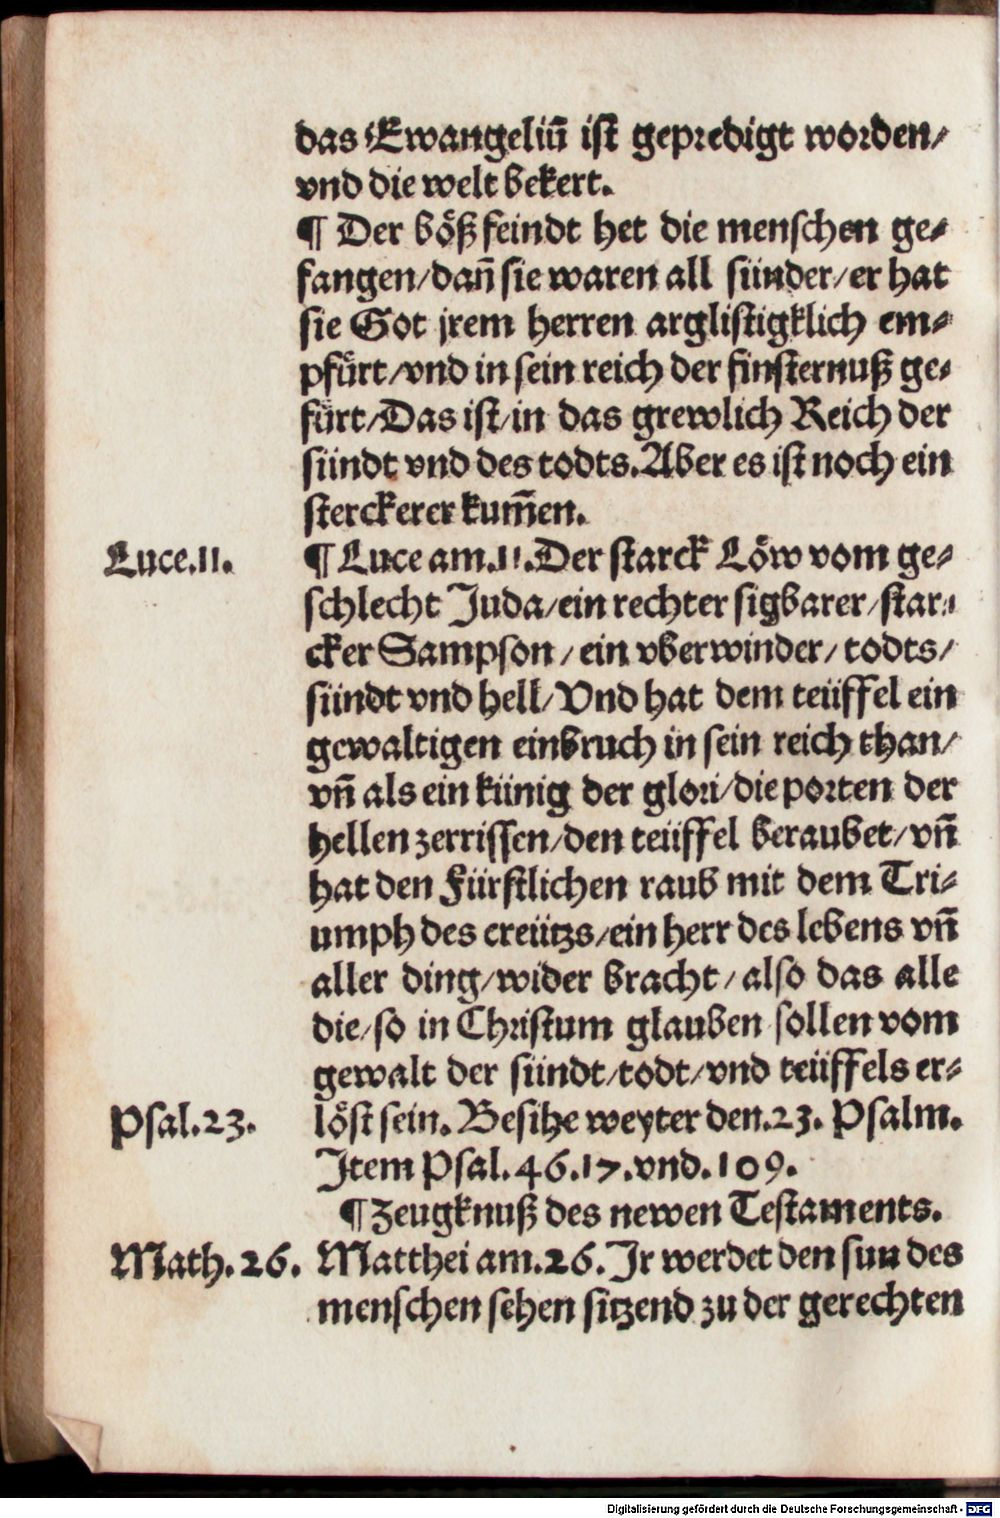 das Ewangeliū ist gepredigt worden/
vnd die welt bekert.
¶ Der bößfeindt het die menschen ge⸗
fangen/dañ sie waren all sünder/er hat
sie Got jrem herren arglistigklich em⸗
pfürt/vnd in sein reich der finsternuß ge⸗
fürt/Das ist/in das grewlich Reich der
sündt vnd des todts.Aber es ist noch ein
sterckerer kum̄en.
Luce.11. ¶ Luce am.11.Der starck Löw vom ge⸗
schlecht Juda/ein rechter sigbarer/star⸗
cker Sampson/ein vberwinder/todts/
sündt vnd hell/Vnd hat dem teüffel ein
gewaltigen einbruch in sein reich than/
vñ als ein künig der glori/die porten der
hellen zerrissen/den teüffel beraubet/vñ
hat den Fürstlichen raub mit dem Tri⸗
umph des creützs/ein herr des lebens vñ
aller ding/wider bracht/also das alle
die/so in Christum glauben sollen vom
gewalt der sündt/todt/vnd teüffels er⸗
Psal.23. löst sein. Besihe weyter den.23. Psalm.
Item Psal.46.17.vnd.109.
¶ Zeugknuß des newen Testaments.
Math.26. Matthei am.26.Jr werdet den sun des
menschen sehen sitzend zu der gerechten
Digitalisierung gefördert durch die Deutsche Forschungsgemeinschaft - DFG